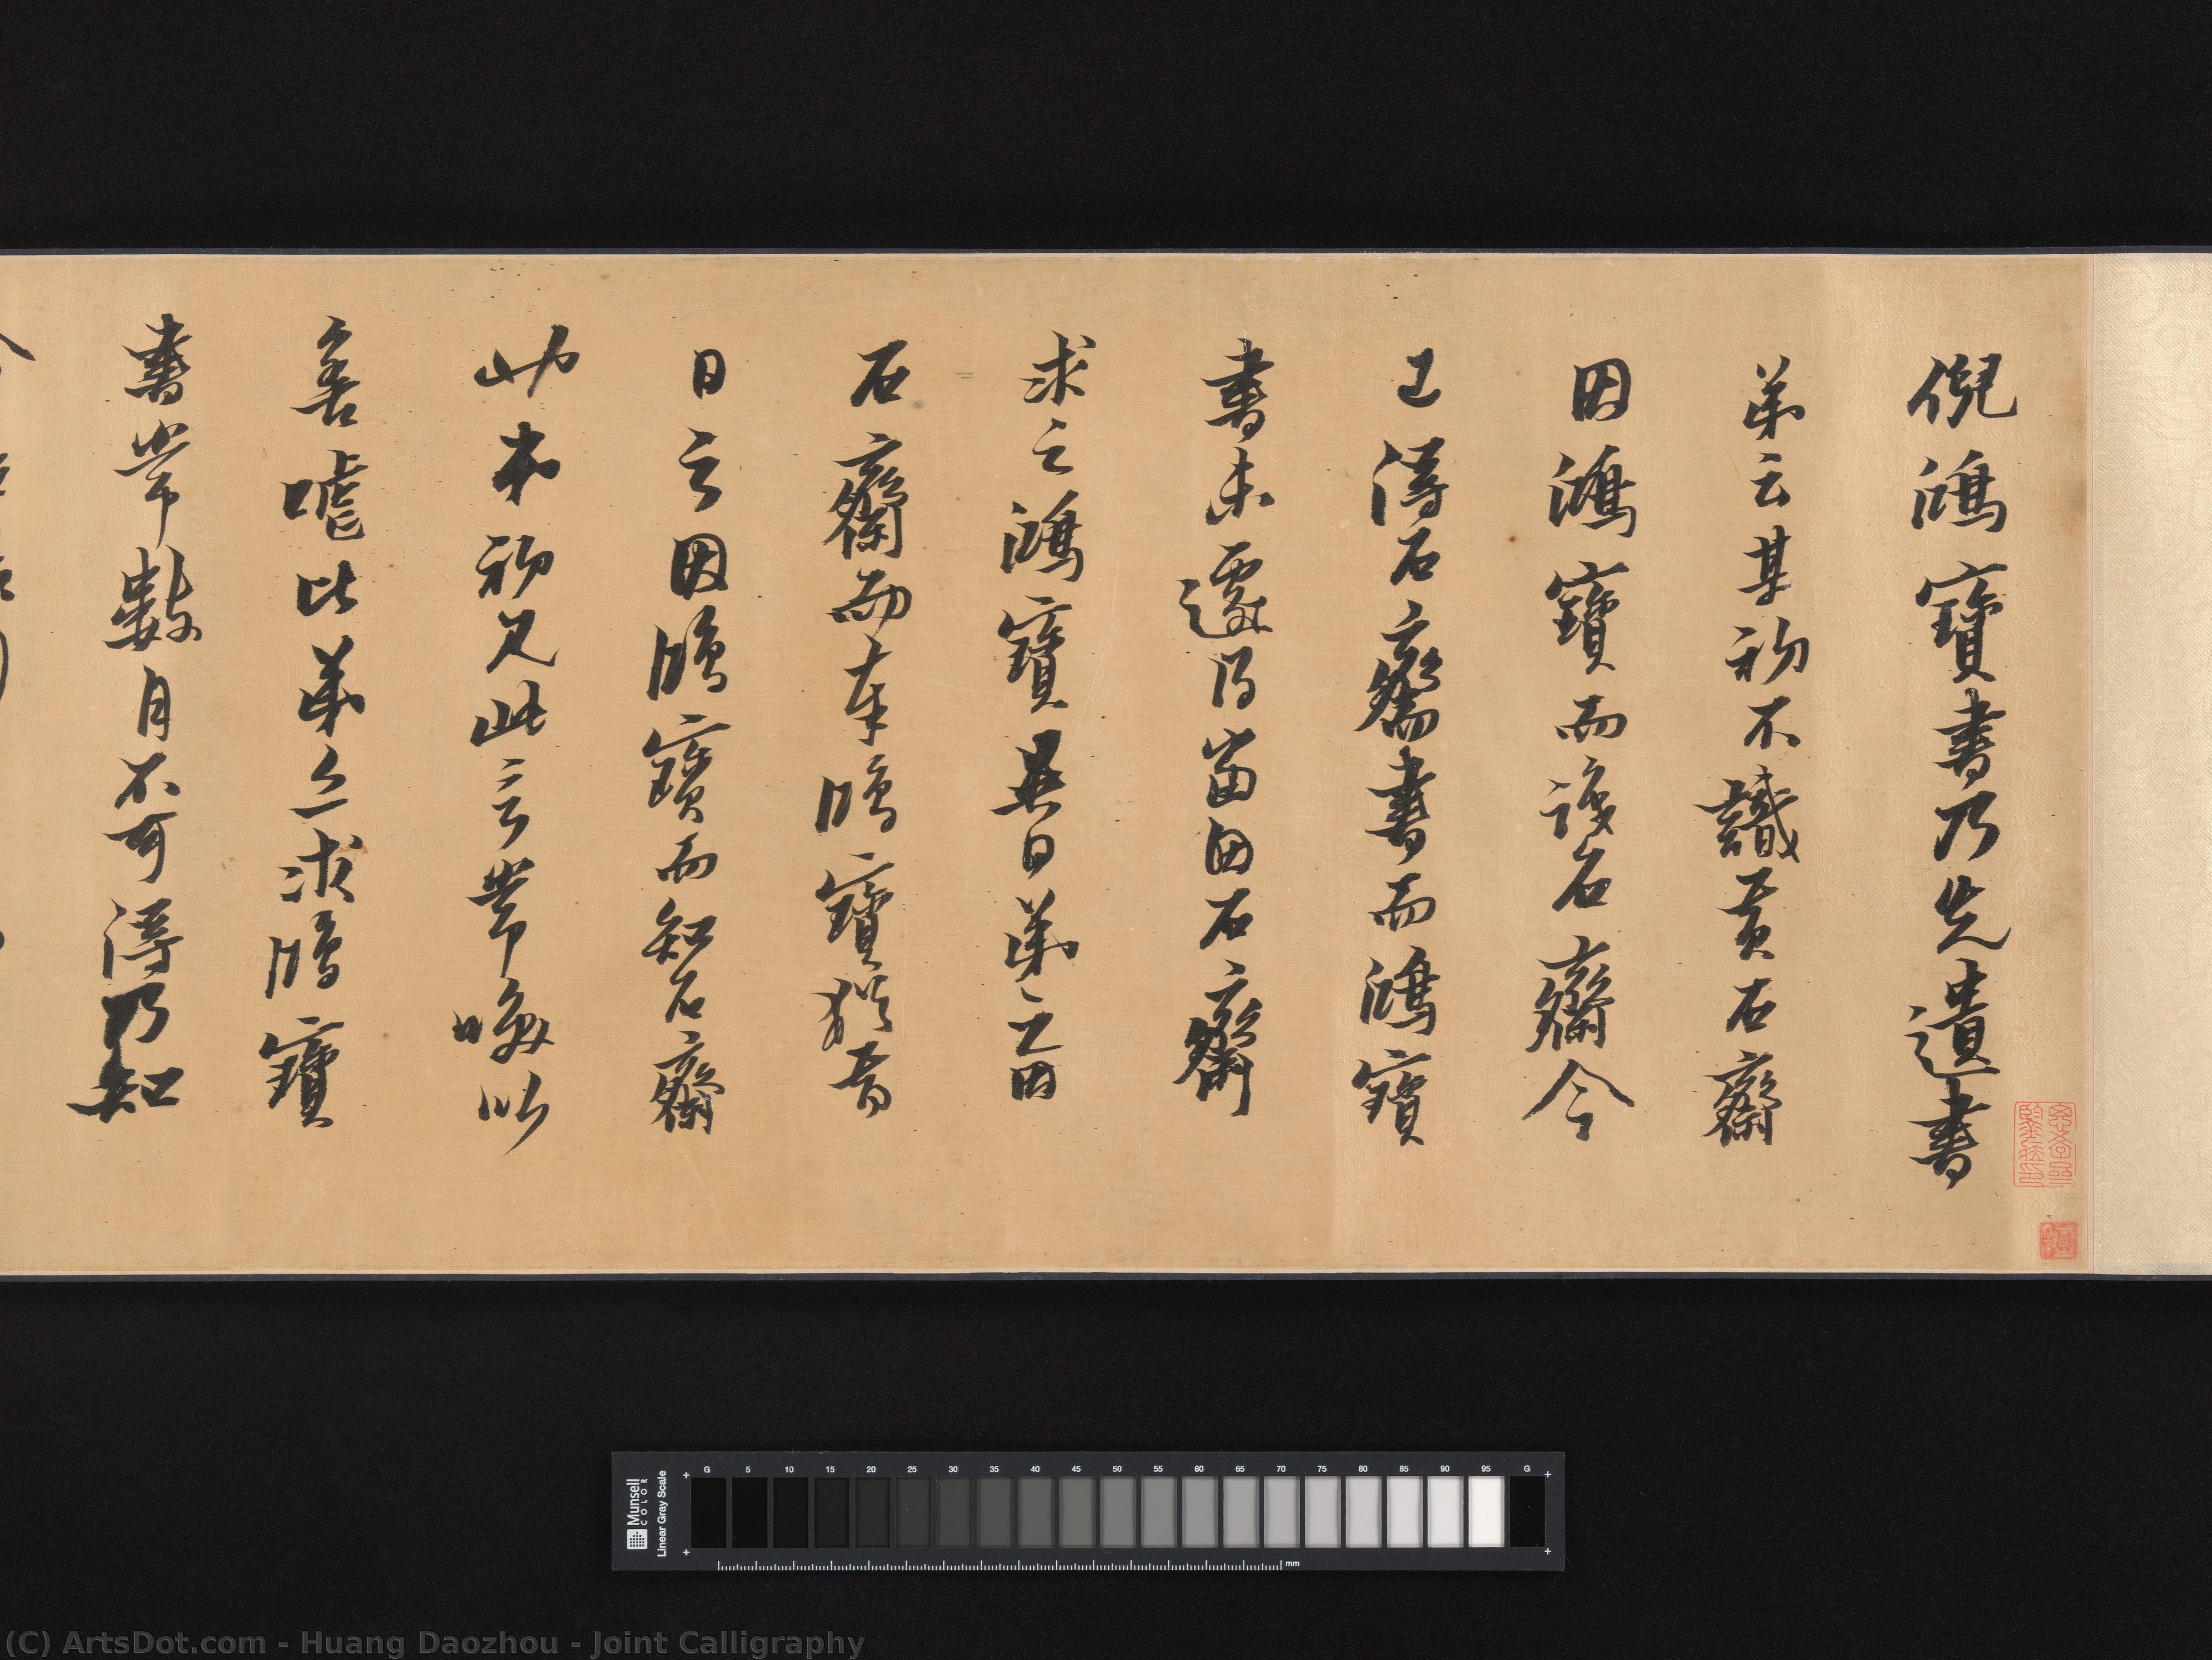 倪鴻寶書乃先遺書
弟云某初不識黃石齋
因鴻寶而識石齋今
已得石齋書而鴻寶
書未還乃當因石齋
求之鴻寶異日弟之因
石齋而奉鴻寶猶昔
日之因鴻寶而知石齋
此弟初見此言嘗以
嘘比弟亟求鴻寶
書常數月不可得乃知
Munsell
COLOR
Linear Gray Scale
G 5 10 15 20 25 30 35 40 45 50 55 60 65 70 75 80 85 90 95 G
mm
(C) ArtsDot.com - Huang Daozhou - Joint Calligraphy